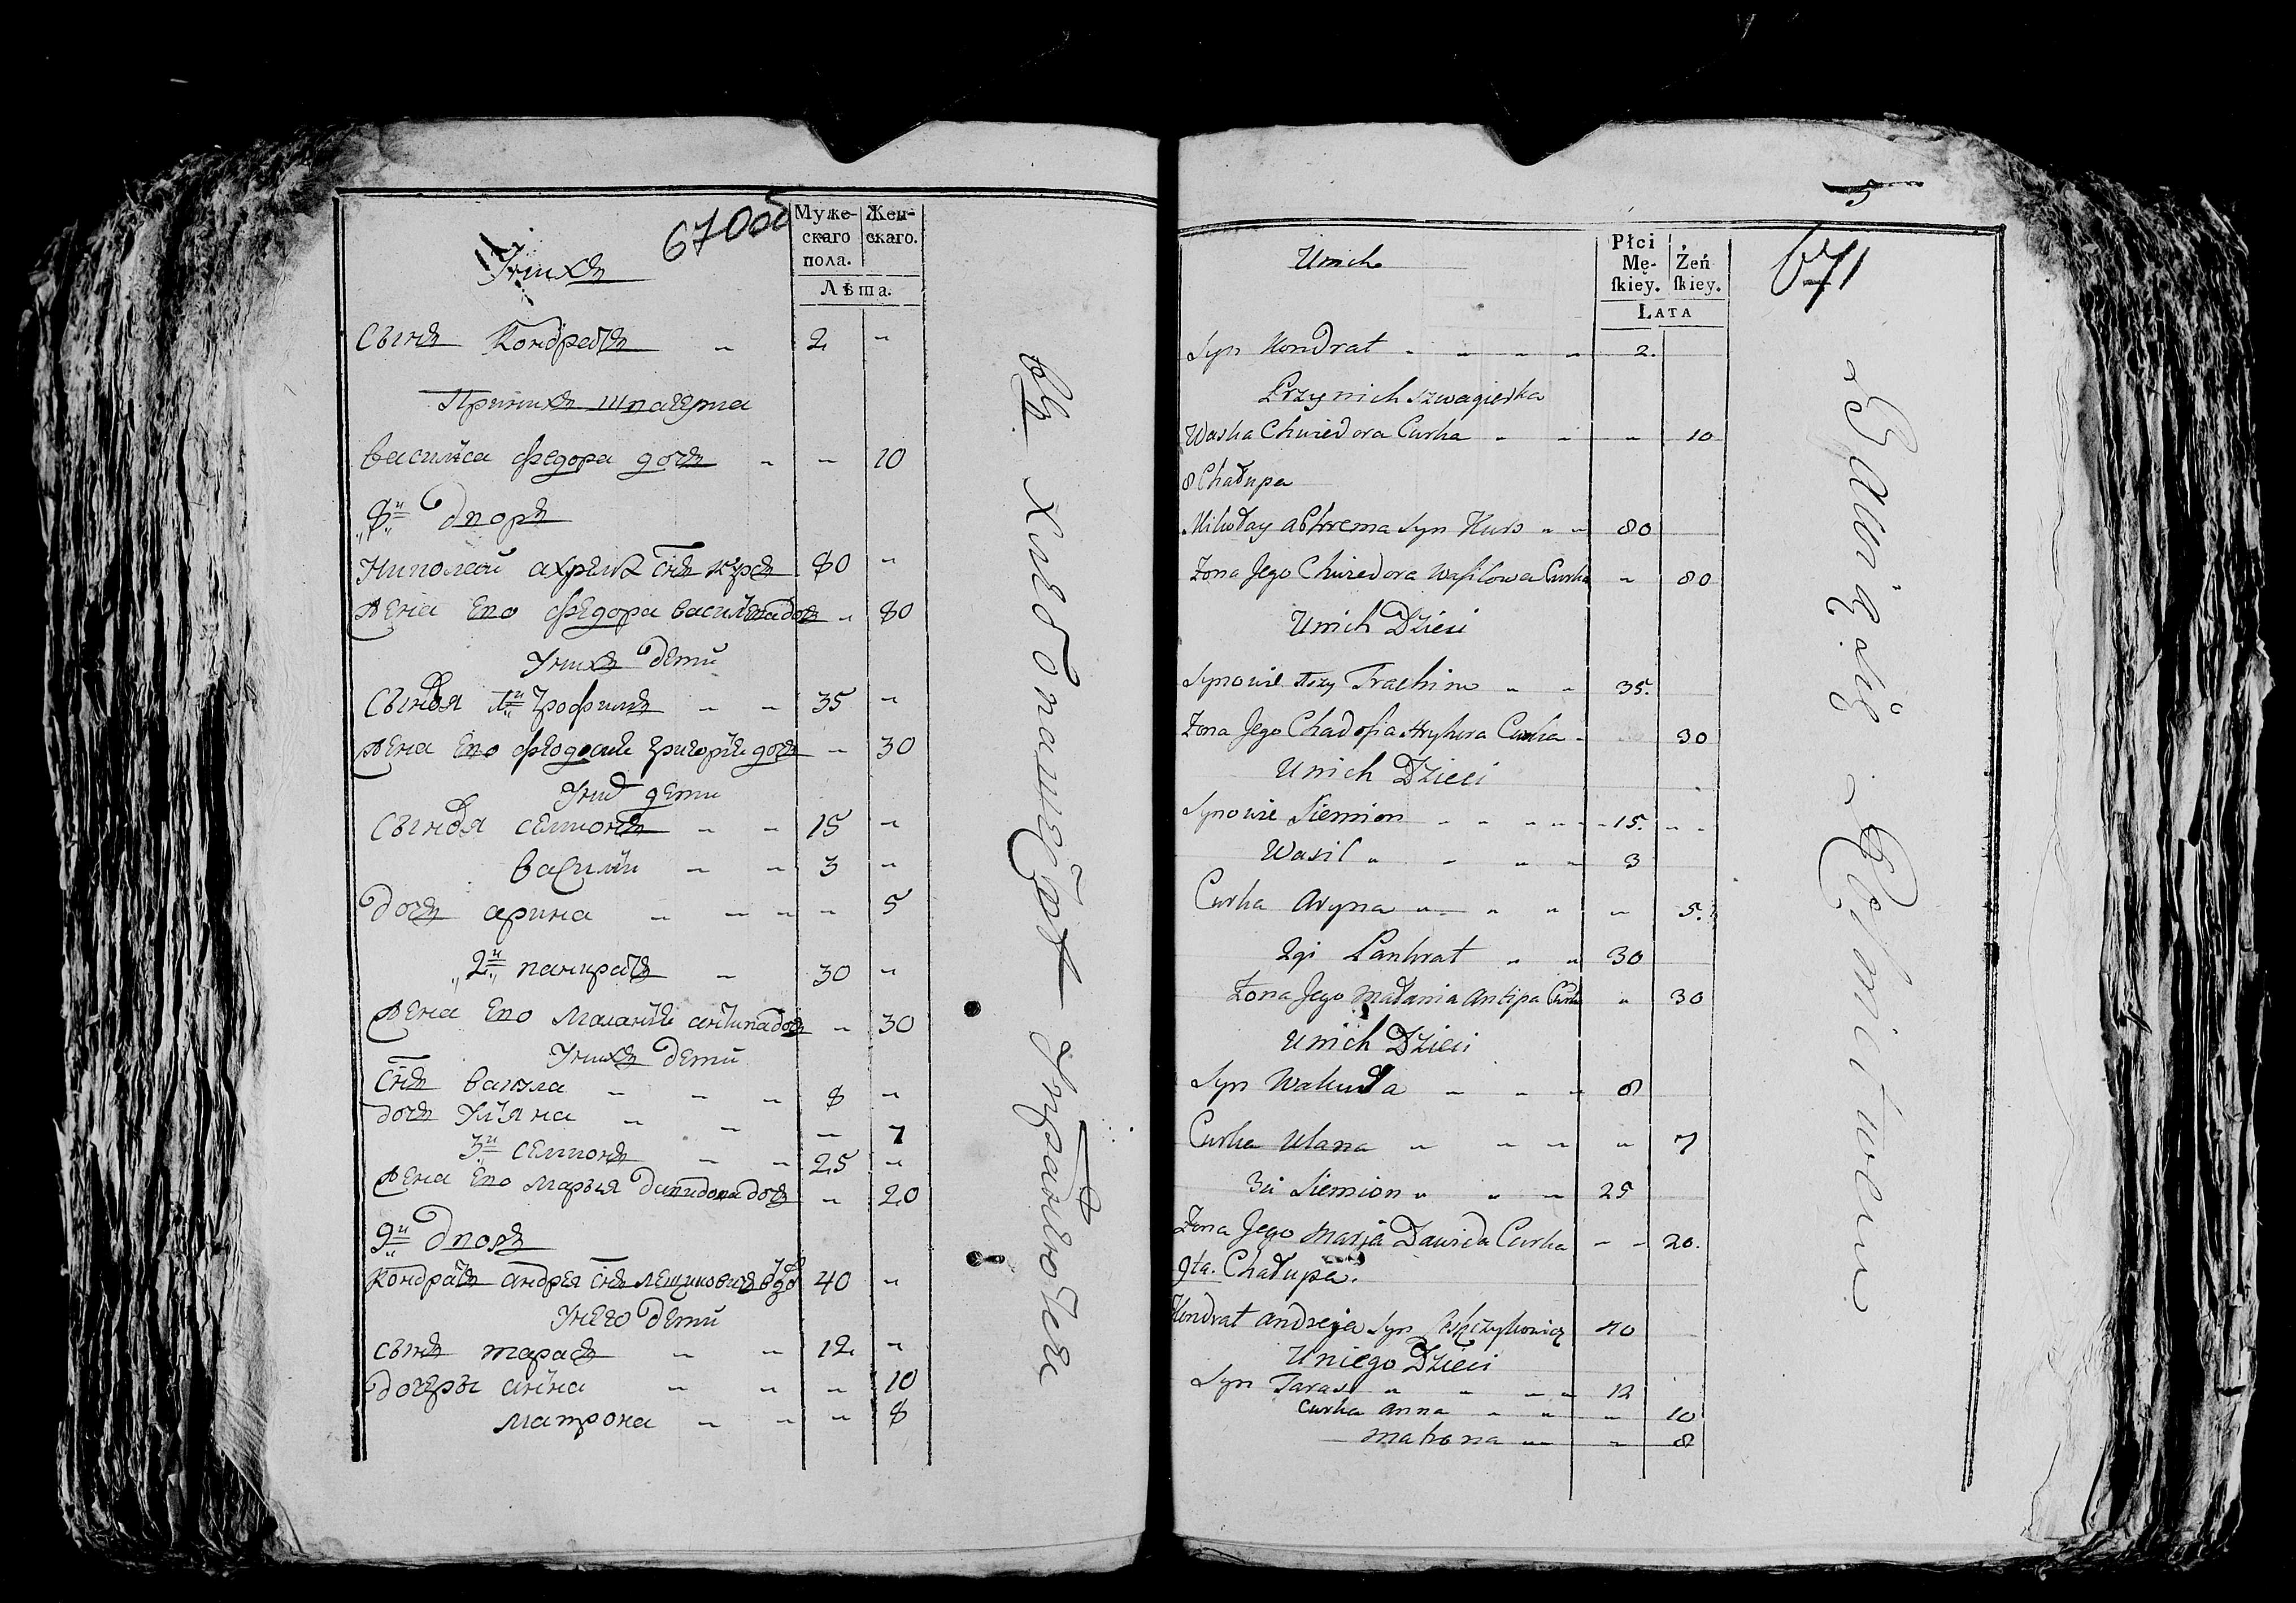 670об
Муже-
скаго
пола.
Жен-
скаго.
Лѣта.
Унихъ
Сынъ Кондратъ " 2 "
Принихъ швагерка
Василиса Федора дочъ " " 10
8й дворъ
Николай ахрема снъ курсъ 80 "
Жена его федора василева дочъ " 80
Унихъ дети
Сыновя 1й трофимъ " " 35 "
Жена его феодосия григория дочъ " 30
Уних дети
Сыновя семионъ " " 15 "
Василий " " 3 "
дочъ арина " " " " 5
2й панкратъ " 30 "
Жена его Малания антипа дочъ " 30
Унихъ дети
Снъ вакула " " " 8 "
дочъ Уляна " " " 7
3й семионъ " " 25 "
Жена его марья давидова дочъ " 20
9й дворъ
Кондратъ андрея снъ лещиковичъ вдов 40 "
Унего дети
Сынъ тарасъ " " 12 "
дочеры анна " " " 10
Матрона " " " 8
въ хлебопашестве упражняются
5
671
Płci
Mę-
skiey.
Żeń
skiey.
LATA
Unich
Syn Kondrat " " " " 2.
Przy nich szwagierka
Waska Chwiedora Curka " " " 10
8 Chałupa
Mikołay achrema Syn Kurs " " 80
Zona Jego Chwiedora Wasilowa Curka " 80
Unich Dzieci
Synowie 1szy Trachim " " 35.
Zona Jego Chadosia Hryhora Curka - 30
Unich Dzieci
Synowie Siemion " " " " " 15. " "
Wasil " " " " 3
Curka Aryna " " " " " 5.
2gi Pankrat " " 30
Zona Jego Małania Antipa Curka " 30
Unich Dzieci
Syn Wakuła " " " 8
Curka Ulana " " " " 7
3ci Siemion " " " 25
Zona Jego Marja Dawida Curka " " 20.
9ta. Chałupa.
Kondrat Andreja Syn Leszczykowicz 40
Uniego Dzieci
Syn Taras " " " " 12
Curka Anna " " " 10
Matrona " " 8